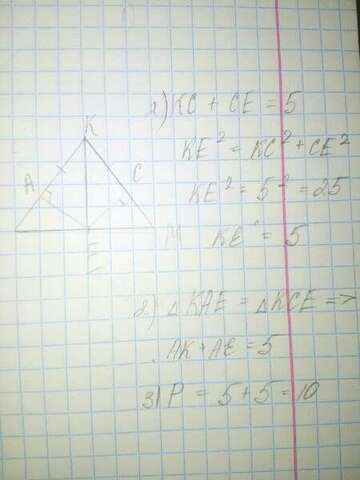 K
A
C
E
M
1) KC + CE = 5
KE² = KC² + CE²
KE² = 5² = 25
KE = 5
2) △KAE = △KCE =>
AK + AE = 5
3) P = 5 + 5 = 10